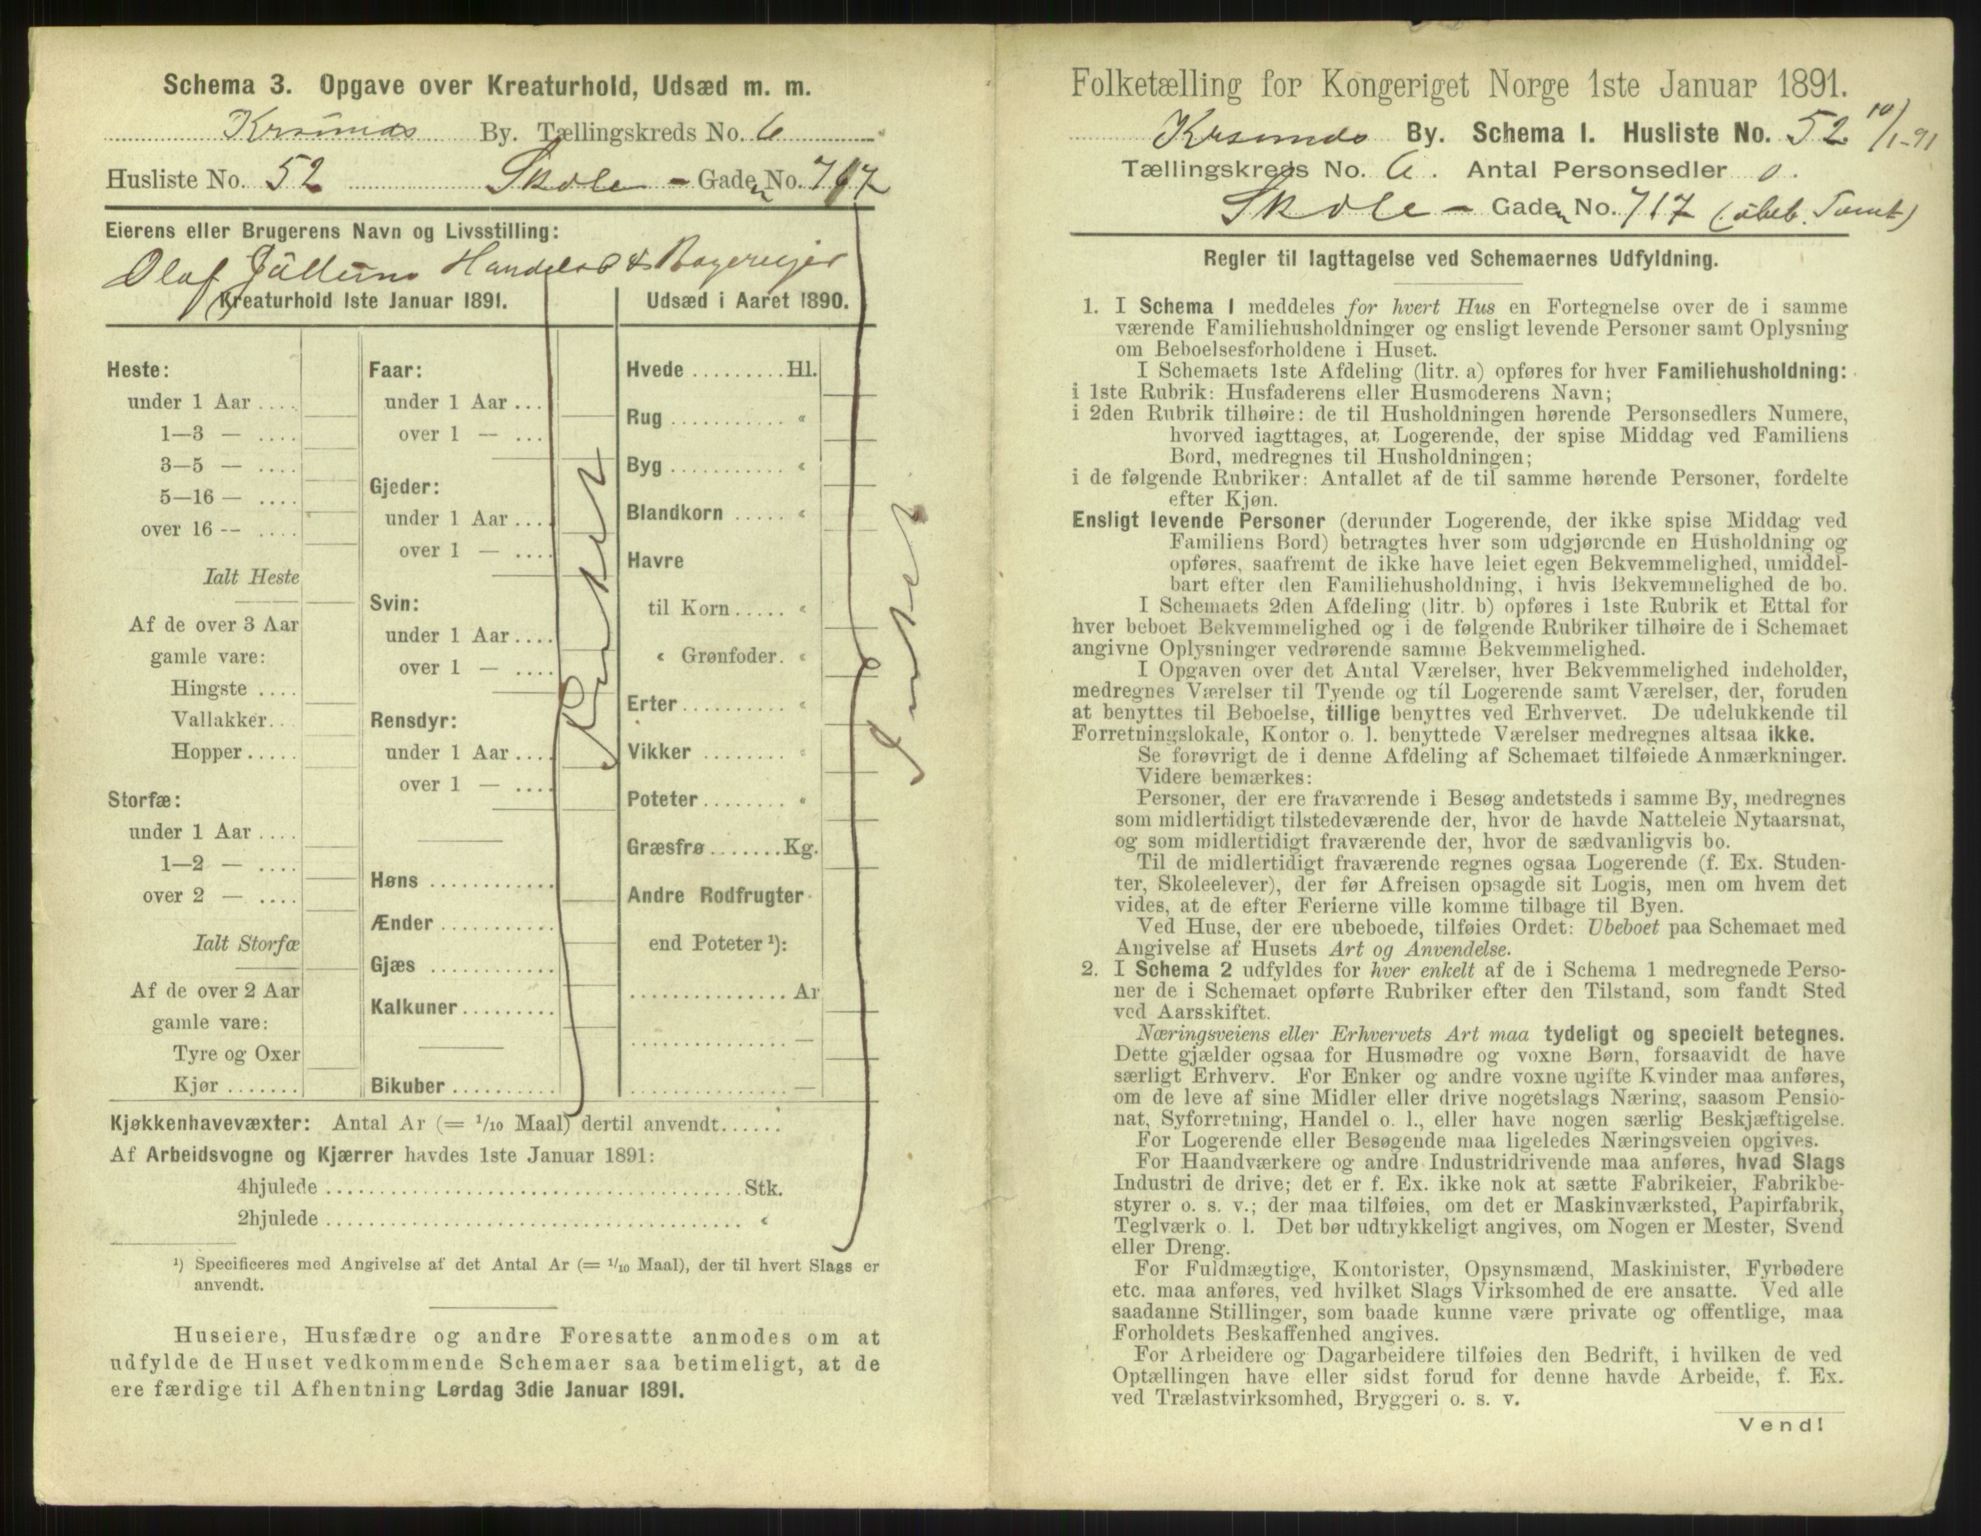 Schema 3. Opgave over Kreaturhold, Udsæd m. m.
Krsunds By. Tællingskreds No. 6
Husliste No. 52 Skole - Gaden No. 717
Eierens eller Brugerens Navn og Livsstilling:
Olaf Handels & Bagereier
Kreaturhold 1ste Januar 1891.
Heste:
under 1 Aar ....
1—3 — ....
3—5 — ....
5—16 — ....
over 16 -- ....
Ialt Heste
Af de over 3 Aar
gamle vare:
Hingste ....
Vallakker..
Hopper.....
Storfæ:
under 1 Aar ....
1—2 — ....
over 2 — ....
Ialt Storfæ
Af de over 2 Aar
gamle vare:
Tyre og Oxer
Kjør .......
Faar:
under 1 Aar ...
over 1 — ...
Gjeder:
under 1 Aar ...
over 1 — ...
Svin:
under 1 Aar....
over 1 — ....
Rensdyr:
under 1 Aar....
over 1 — ....
Høns ............
Ænder ...........
Gjæs ............
Kalkuner.........
Bikuber ..........
Intet
Udsæd i Aaret 1890.
Hvede .........Hl.
Rug ........... «
Byg ........... «
Blandkorn ..... «
Havre
til Korn..... «
« Grønfoder. «
Erter.......... «
Vikker ........ «
Poteter........ «
Græsfrø.......Kg.
Andre Rodfrugter
end Poteter ¹):
...............Ar
...............—
...............—
Intet
Kjøkkenhavevæxter: Antal Ar (= 1/10 Maal) dertil anvendt......
Af Arbeidsvogne og Kjærrer havdes 1ste Januar 1891:
4hjulede ........................................Stk.
2hjulede ........................................ «
¹) Specificeres med Angivelse af det Antal Ar (= 1/10 Maal), der til hvert Slags er
anvendt.
Huseiere, Husfædre og andre Foresatte anmodes om at
udfylde de Huset vedkommende Schemaer saa betimeligt, at de
ere færdige til Afhentning Lørdag 3die Januar 1891.
Folketælling for Kongeriget Norge 1ste Januar 1891.
Krsunds By. Schema I. Husliste No. 52 10/1-91
Tællingskreds No. 6. Antal Personsedler 0.
Skole - Gaden No. 717 (ubeb. Tomt)
Regler til Iagttagelse ved Schemaernes Udfyldning.
1. I Schema 1 meddeles for hvert Hus en Fortegnelse over de i samme
værende Familiehusholdninger og ensligt levende Personer samt Oplysning
om Beboelsesforholdene i Huset.
I Schemaets 1ste Afdeling (litr. a) opføres for hver Familiehusholdning:
i 1ste Rubrik: Husfaderens eller Husmoderens Navn;
i 2den Rubrik tilhøire: de til Husholdningen hørende Personsedlers Numere,
hvorved iagttages, at Logerende, der spise Middag ved Familiens
Bord, medregnes til Husholdningen;
i de følgende Rubriker: Antallet af de til samme hørende Personer, fordelte
efter Kjøn.
Ensligt levende Personer (derunder Logerende, der ikke spise Middag ved
Familiens Bord) betragtes hver som udgjørende en Husholdning og
opføres, saafremt de ikke have leiet egen Bekvemmelighed, umiddel-
bart efter den Familiehusholdning, i hvis Bekvemmelighed de bo.
I Schemaets 2den Afdeling (litr. b) opføres i 1ste Rubrik et Ettal for
hver beboet Bekvemmelighed og i de følgende Rubriker tilhøire de i Schemaet
angivne Oplysninger vedrørende samme Bekvemmelighed.
I Opgaven over det Antal Værelser, hver Bekvemmelighed indeholder,
medregnes Værelser til Tyende og til Logerende samt Værelser, der, foruden
at benyttes til Beboelse, tillige benyttes ved Erhvervet. De udelukkende til
Forretningslokale, Kontor o. l. benyttede Værelser medregnes altsaa ikke.
Se forøvrigt de i denne Afdeling af Schemaet tilføiede Anmærkninger.
Videre bemærkes:
Personer, der ere fraværende i Besøg andetsteds i samme By, medregnes
som midlertidigt tilstedeværende der, hvor de havde Natteleie Nytaarsnat,
og som midlertidigt fraværende der, hvor de sædvanligvis bo.
Til de midlertidigt fraværende regnes ogsaa Logerende (f. Ex. Studen-
ter, Skoleelever), der før Afreisen opsagde sit Logis, men om hvem det
vides, at de efter Ferierne ville komme tilbage til Byen.
Ved Huse, der ere ubeboede, tilføies Ordet: Ubeboet paa Schemaet med
Angivelse af Husets Art og Anvendelse.
2. I Schema 2 udfyldes for hver enkelt af de i Schema 1 medregnede Perso-
ner de i Schemaet opførte Rubriker efter den Tilstand, som fandt Sted
ved Aarsskiftet.
Næringsveiens eller Erhvervets Art maa tydeligt og specielt betegnes.
Dette gjælder ogsaa for Husmødre og voxne Børn, forsaavidt de have
særligt Erhverv. For Enker og andre voxne ugifte Kvinder maa anføres,
om de leve af sine Midler eller drive nogetslags Næring, saasom Pensio-
nat, Syforretning, Handel o. l., eller have nogen særlig Beskjæftigelse.
For Logerende eller Besøgende maa ligeledes Næringsveien opgives.
For Haandværkere og andre Industridrivende maa anføres, hvad Slags
Industri de drive; det er f. Ex. ikke nok at sætte Fabrikeier, Fabrikbe-
styrer o. s. v.; der maa tilføies, om det er Maskinværksted, Papirfabrik,
Teglværk o. l. Det bør udtrykkeligt angives, om Nogen er Mester, Svend
eller Dreng.
For Fuldmægtige, Kontorister, Opsynsmænd, Maskinister, Fyrbødere
etc. maa anføres, ved hvilket Slags Virksomhed de ere ansatte. Ved alle
saadanne Stillinger, som baade kunne være private og offentlige, maa
Forholdets Beskaffenhed angives.
For Arbeidere og Dagarbeidere tilføies den Bedrift, i hvilken de ved
Optællingen have eller sidst forud for denne havde Arbeide, f. Ex.
ved Trælastvirksomhed, Bryggeri o. s. v.
Vend!